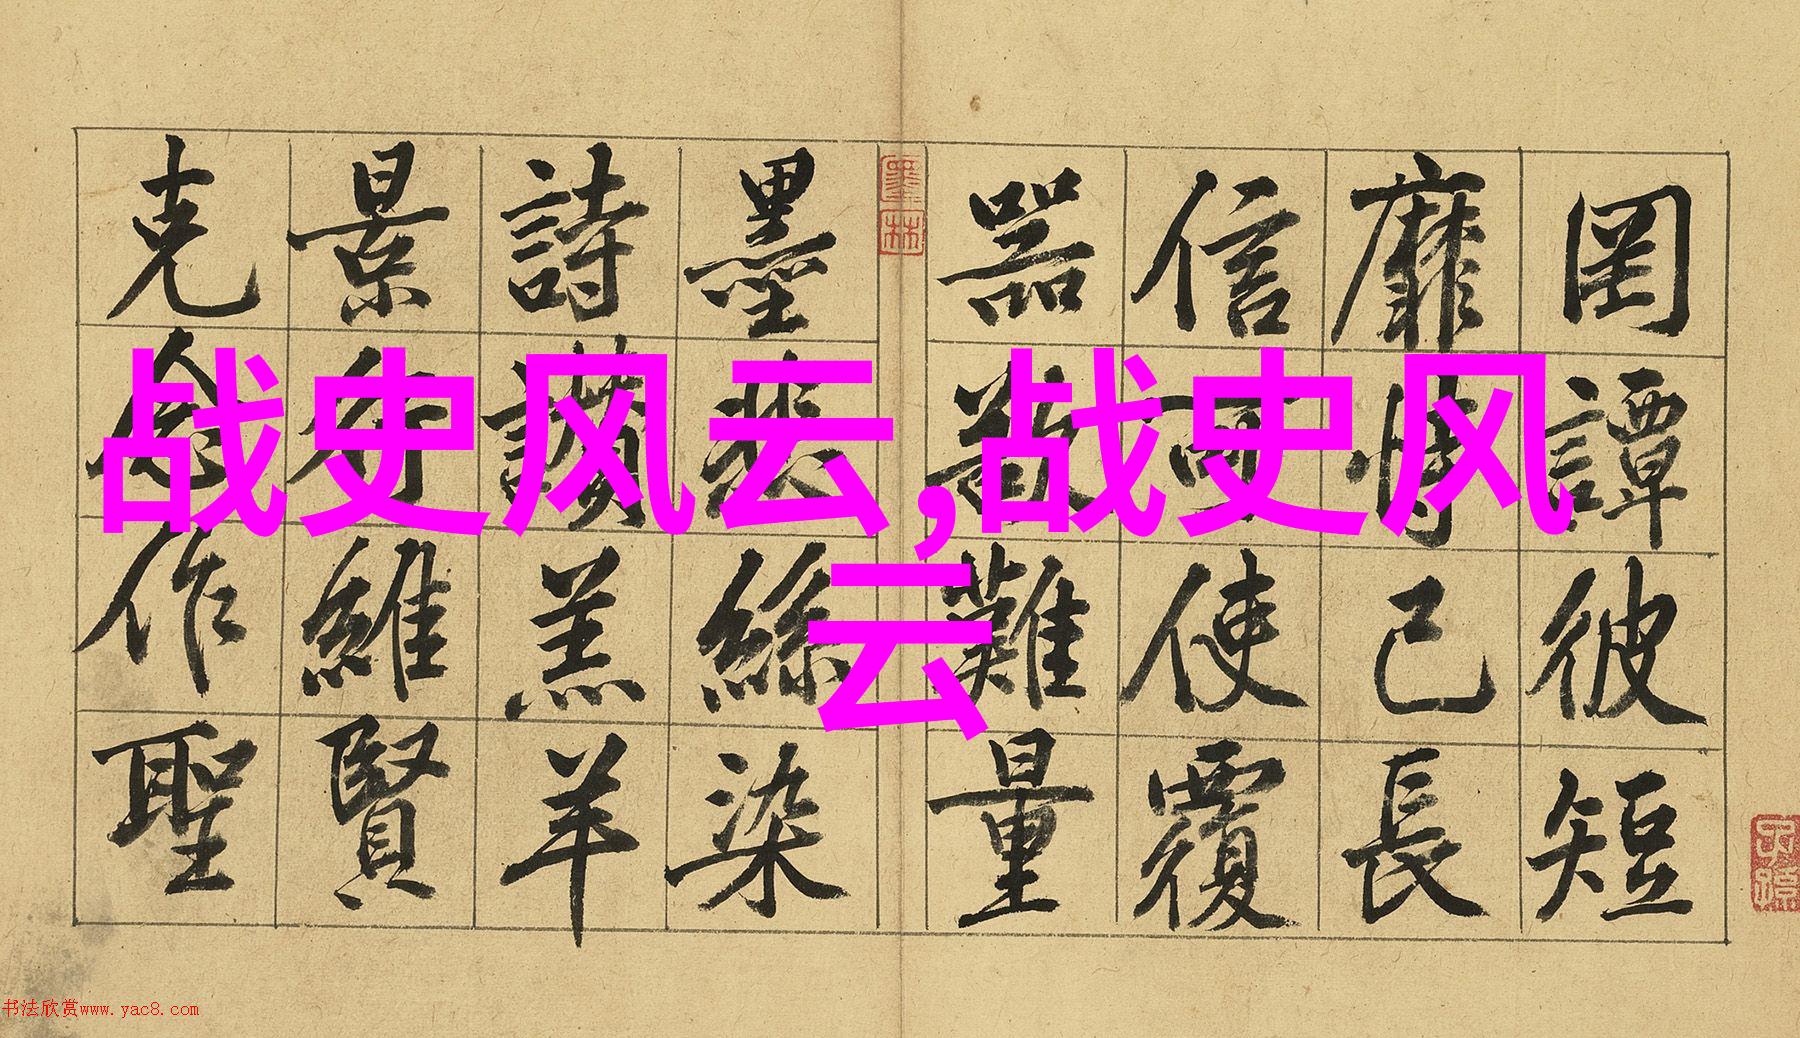 罔譚彼短
靡恃己長
信可使覆
器難量
墨林
墨悲絲染
詩讚羔羊
景行維賢
克念作聖
战史风云,战史风
云
书法欣赏www.yac8.com